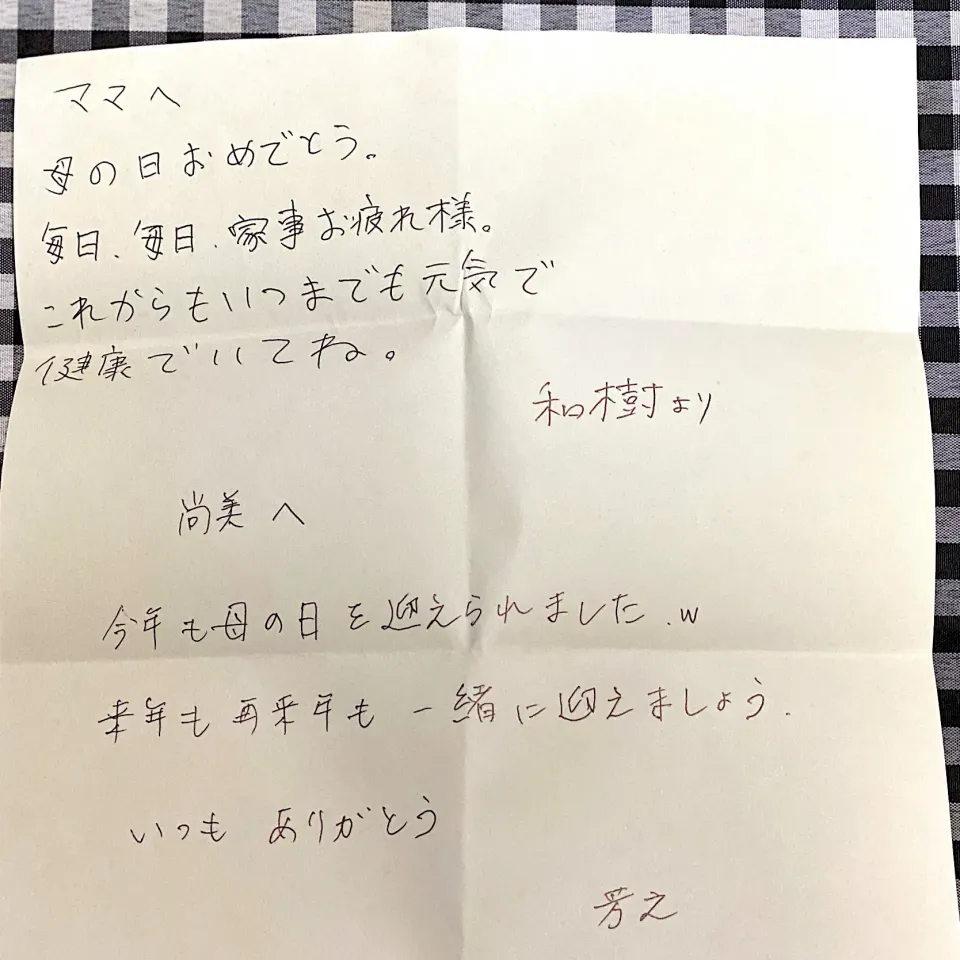 ママへ
母の日おめでとう。
毎日、毎日、家事お疲れ様。
これからもいつまでも元気で
健康でいてね。
和樹より
尚美へ
今年も母の日を迎えられました.w
来年も再来年も一緒に迎えましょう.
いつも ありがとう
芳之